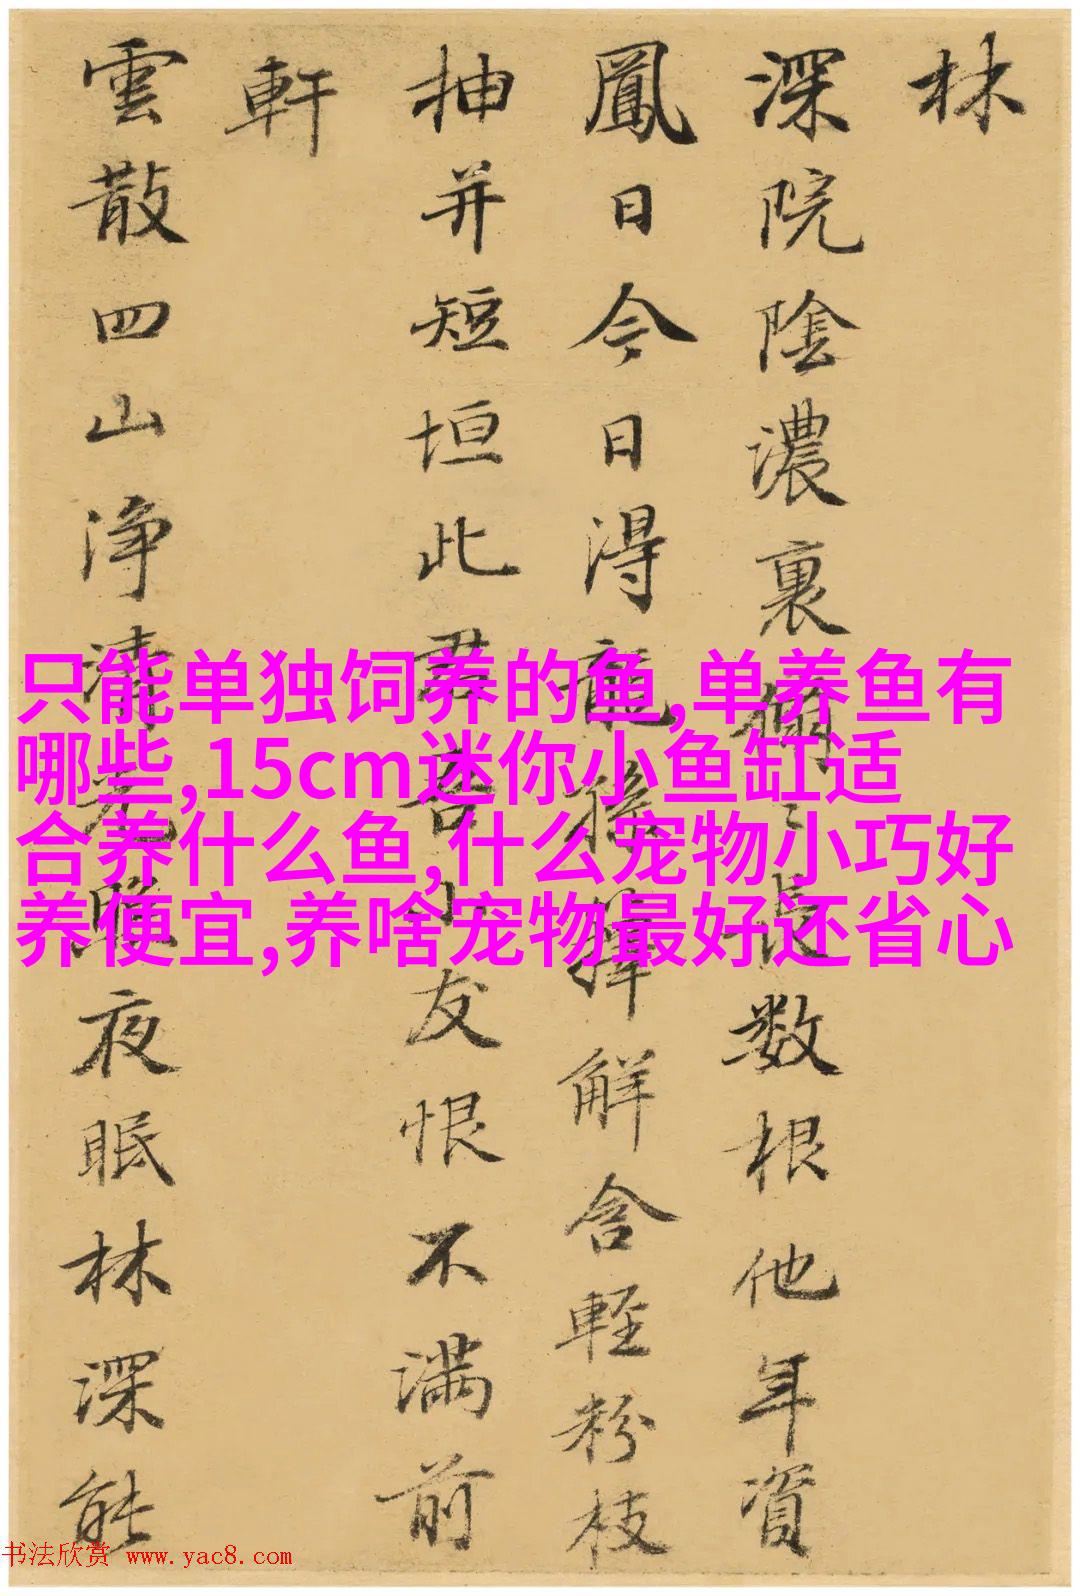 林
深院陰濃裏長数根他年資
鳳日今日得龍孫籜解含輕粉枝
抽并短垣此君吾小友恨不満前
軒
雲散四山浄清光照夜眠林深能
只能单独饲养的鱼,单养鱼有
哪些,15cm迷你小鱼缸适
合养什么鱼,什么宠物小巧好
养便宜,养啥宠物最好还省心
书法欣赏 www.yac8.com